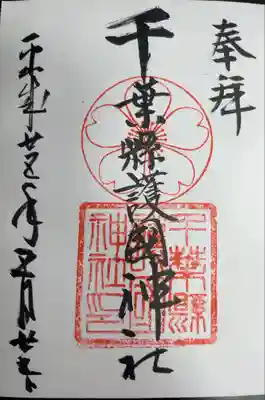 奉拝
千葉縣護國神社
千葉縣
護國
神社之印
平成廿五年五月廿六日